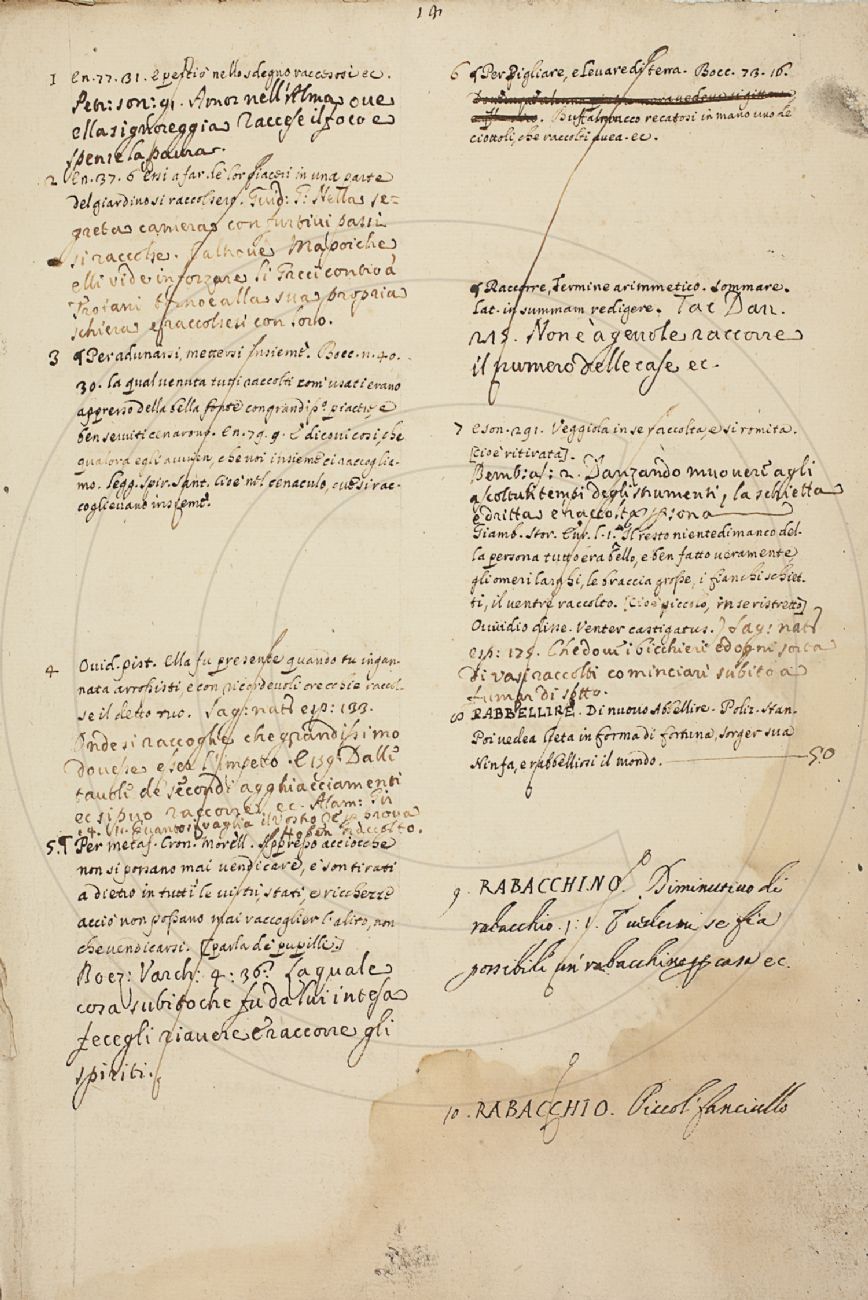 1 En. 77. 31. e perciò nello sdegno raccesosi ec.
Petr: son: 91. Amor nell'Alma oue
ella signoreggia Raccese il foco e
spense la paura.
2 En. 37. 6 Essi a far de lor piaceri in una parte
del giardino si raccolsero. Guid: G: Nella se-
greta camera con furtivi passi
si raccolse. Ma poiche
elli vide inforzare li Greci contro à
Troiani tornoe alla sua propria
schiera e raccolsesi con loro.
3 ¶ Per adunarsi, mettersi insieme. Bocc. n. 40.
30. la qual venuta tutti raccolti com'usati erano
appresso della bella fonte con grandiss.o piacere e
ben seruiti cenarono. En. 79. 9. E diconui così, che
qualora egli auuien, che noi insieme ci raccoglia-
mo. Legg. Spir. Sant. Cioè nel cenaculo, oue si rac-
coglieuano insieme.
4 Ouid. pist. Ella fu presente quando tu ingan-
nata arrosisti, e con ricordeuoli orecchie raccol-
se il detto tuo. Sag: nat: esp: 133.
Onde si raccoglie che grandissimo
douesse esser l'impeto. E 159. Dalle
tauole de secondi agghiacciamenti
ec si puo raccorre ec. Alam: Gir.
5. ¶ Per metaf. Cron. Morell. Appresso acciocche
non si possano mai vendicare, e son tirati
a dietro in tutti le uirtù, stati, e ricchezze
acciò non possano mai raccoglier l'alito, non
che uendicarsi. [parla de' pupilli.]
Boez: Varch: 4: 36. La quale
cosa subito che fu da lui intesa
fecegli riauere e raccorre gli
spiriti.
6 ¶ Per Pigliare, e leuare di terra. Bocc. 73. 16.
Buffalmacco recatosi in mano uno de
ciottoli, che raccolti auea. ec.
¶ Raccorre, Termine aritmmetico. Sommare.
Lat. in summam redigere. Tac Dau.
215. Non è ageuole raccorre
il numero delle case ec.
7 E son. 291. Veggiola in se raccolta, e si romita.
[cioè ritirata].
Bemb: as: 2. Danzando muouere agli
ascoltati tempi degli strumenti, la schietta
e dritta e raccolta psona
Giamb. Stor. Eur. l. 1.o Il resto nientedimanco del-
la persona tutto era bello, e ben fatto ueramente
gli omeri larghi, le braccia grosse, i fianchi schiet-
ti, il uentre raccolto. [Cioè piccolo, in se ristretto]
Ouuidio disse. Venter castigatus. Sag: nat:
esp: 175. Che doue i bicchieri ed ogni sorta
di vasi raccolti cominciare subito a
fumar di sotto.
8 RABBELLIRE. Di nuouo Abbellire. Poliz. Stan.
Poi uedea lieta in forma di fortuna, sorger sua
Ninfa, e rabbellirsi il mondo. 50
9. RABACCHINO. Diminutiuo di
rabacchio. se fia
possibile un rabacchino
10. RABACCHIO. Piccol fanciullo